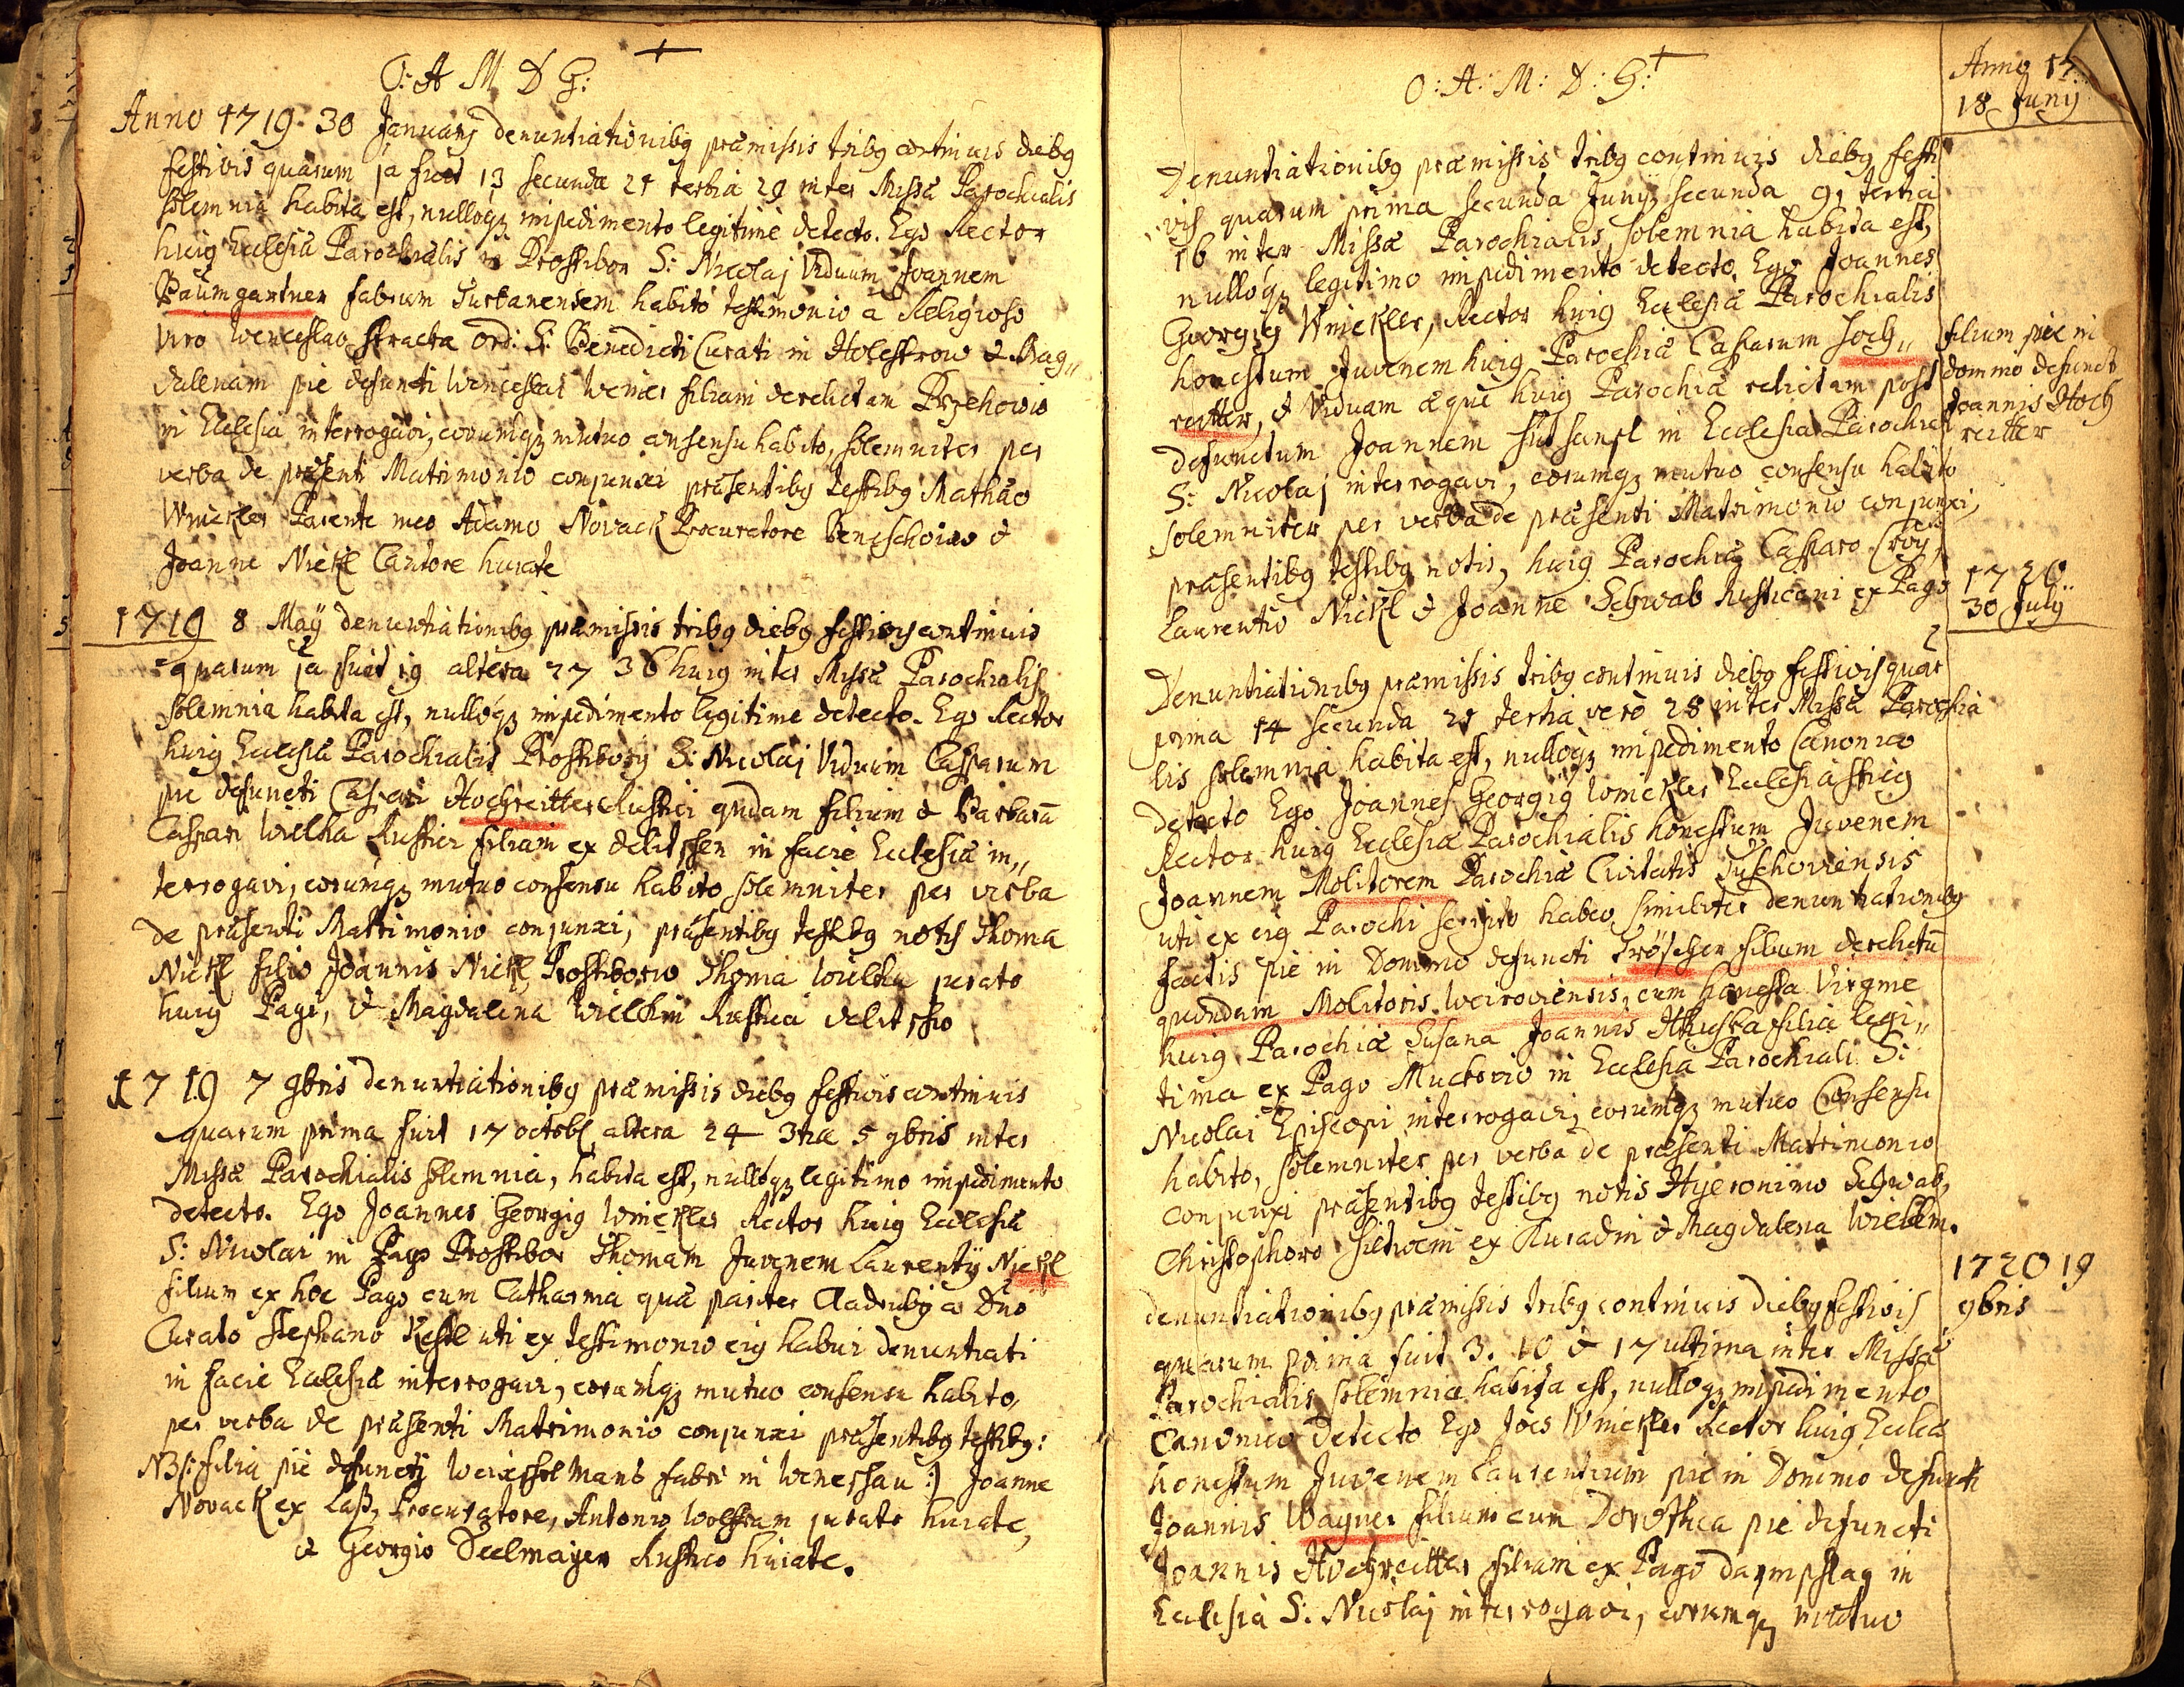 O: A M D G:
Anno 1719. 30 Januarij denuntiationibg præmissis tribg continuis diebg
festivis quarum 1a fuit 13 secunda 21 tertia 29 inter Missæ Parochialis
solemnia habita est, nullogz impedimento legitime detecto. Ego Rector
huig Ecclesiæ Parochialis in Prostibor S: Nicolaj Viduum Joannem
Baumgartner fabrum habito testimonio a Religioso
Viro Wenceslao Ord: S: Benedicti Curati in Holestrow & Mag„
dalenam pie defuncti Wenceslai filiam derelictam Przehowio
in Ecclesia interrogavi, eorumqz mutuo consensu habito, solemniter per
verba de præsenti Matrimonio conjunxi præsentibg testibg Mathæo
Winckler Parente meo Adamo Novack Procuratore &
Joanne Nickl Cantore huiate
1719 8 Maÿ denuntiationibg præmissis tribg diebg festivis continuis
quarum 1a fuit 19 altera 27 30 huig inter Missæ Parochialis
solemnia habita est, nullogz impedimento legitime detecto. Ego Rector
huig Ecclesiæ Parochialis Prostibory S: Nicolaj Viduum Casparum
pie defuncti Caspari Hochreitter Rustici qndam filium & Barbarã
Caspari Wielka Rustici filiam ex in facie Ecclesiæ in„
terrogavi, eorumqz mutuo consensu habito solemniter per verba
de præsenti Mattimonio conjunxi, præsentibg testibg notis Thoma
Nickl filio Joannis Nickl Prostiborio Thoma Wielka jurato
huig Pagi, & Magdalena Wielkin Rustica
1719 7 9bris denuntiationibg præmissis diebg festivis continuis
quarum prima fuit 17 octobr altera 24 3tia 5 9bris inter
Missæ Parochialis solemnia, habita est, nullogz legitimo impedimento
detecto. Ego Joannes Georgig Winckler Rector huig Ecclesiæ
S: Nicolai in Pago Prostibor Thomam Juvenem Laurentÿ Nickl
filium ex hoc Pago cum Catharina quæ pariter Cladrubij a Dño
Curato Stephano uti ex testimonio eig habui denuntiati
in facie Ecclesiæ interrogavi, eorumqz mutuo consensu habito,
per verba de præsenti Matrimonio conjunxi præsentibg testibg:
NB: filia pie defuncti fabri in :| Joanne
Novack ex Laß, Procuratore, Antonio Wolfram jurato huiate,
& Georgio Deelmayer Rustico huiate.
O: A: M: D: G:
Anno 17
18 Junij
Denuntiationibg præmissis tribg continuis diebg festi
vis quarum prima secunda Junij secunda 9, tertia
16 inter Missæ Parochialis solemnia habita est,
nullogz legitimo impedimento detecto. Ego Joannes
Georgig Winckler, Rector huig Ecclesiæ Parochialis
honestum Juvenem huig Parochiæ Casparum Hoch„
reitter, & Viduam æque huig Parochiæ relictam post
defunctum Joannem in Ecclesia Parochial
filium pie in
domino defunct
Joannis Hoch
reitter
S: Nicolaj interrogavi, eorumqz mutuo consensu habito
solemniter per verba de præsenti Matrimonio conjunxi,
præsentibg testibg notis, huig Parochiæ Casparo
Laurentio Nickl & Joanne Schwab Rusticani ex Pago
1720
30 Julÿ
Denuntiationibg præmissis tribg continuis diebg festivis quar
prima 14 secunda 21 tertia vero 28 inter Missæ Parochia
lis solemnia habita est, nullogz impedimento Canonico
detecto Ego Joannes Georgig Winckler Ecclesiæ huig
Rector huig Ecclesiæ Parochialis honestum Juvenem
Joannem Molitorem Parochiæ Civitatis Tuschoviensis
uti ex eig Parochi scripto habeo similiter denuntiationibg
factis pie in Domino defuncti Tröscher filium derelictũ
quondam Molitoris Weiroviensis, cum honesta Virgine
huig Parochiæ Susana Joannis filia legi„
tima ex Pago Muckovio in Ecclesia Parochiali S:
Nicolai Episcopi interrogavi, eorumqz mutuo Consensu
habito, solemniter per verba de præsenti Matrimonio
conjunxi præsentibg testibg notis Hyeronimo Schwab,
Christophoro ex & Magdalena Wielkin.
1720 19
9bris
denuntiationibg præmissis tribg continuis diebg festivis
quarum prima fuit 3. 10 & 17 ultima inter Missæ
Parochialis solemnia habita est, nullogz impedimento
Canonico Detecto Ego Joës Winckler Rector huig Eccleæ
honestum Juvenem Laurentium pie in Domino defuncti
Joannis Wagner filium cum Dorothea pie defuncti
Joannis Hochreitter filiam ex Pago Darmschlag in
Ecclesia S: Nicolaj interrogavi, eorumqz mutuo